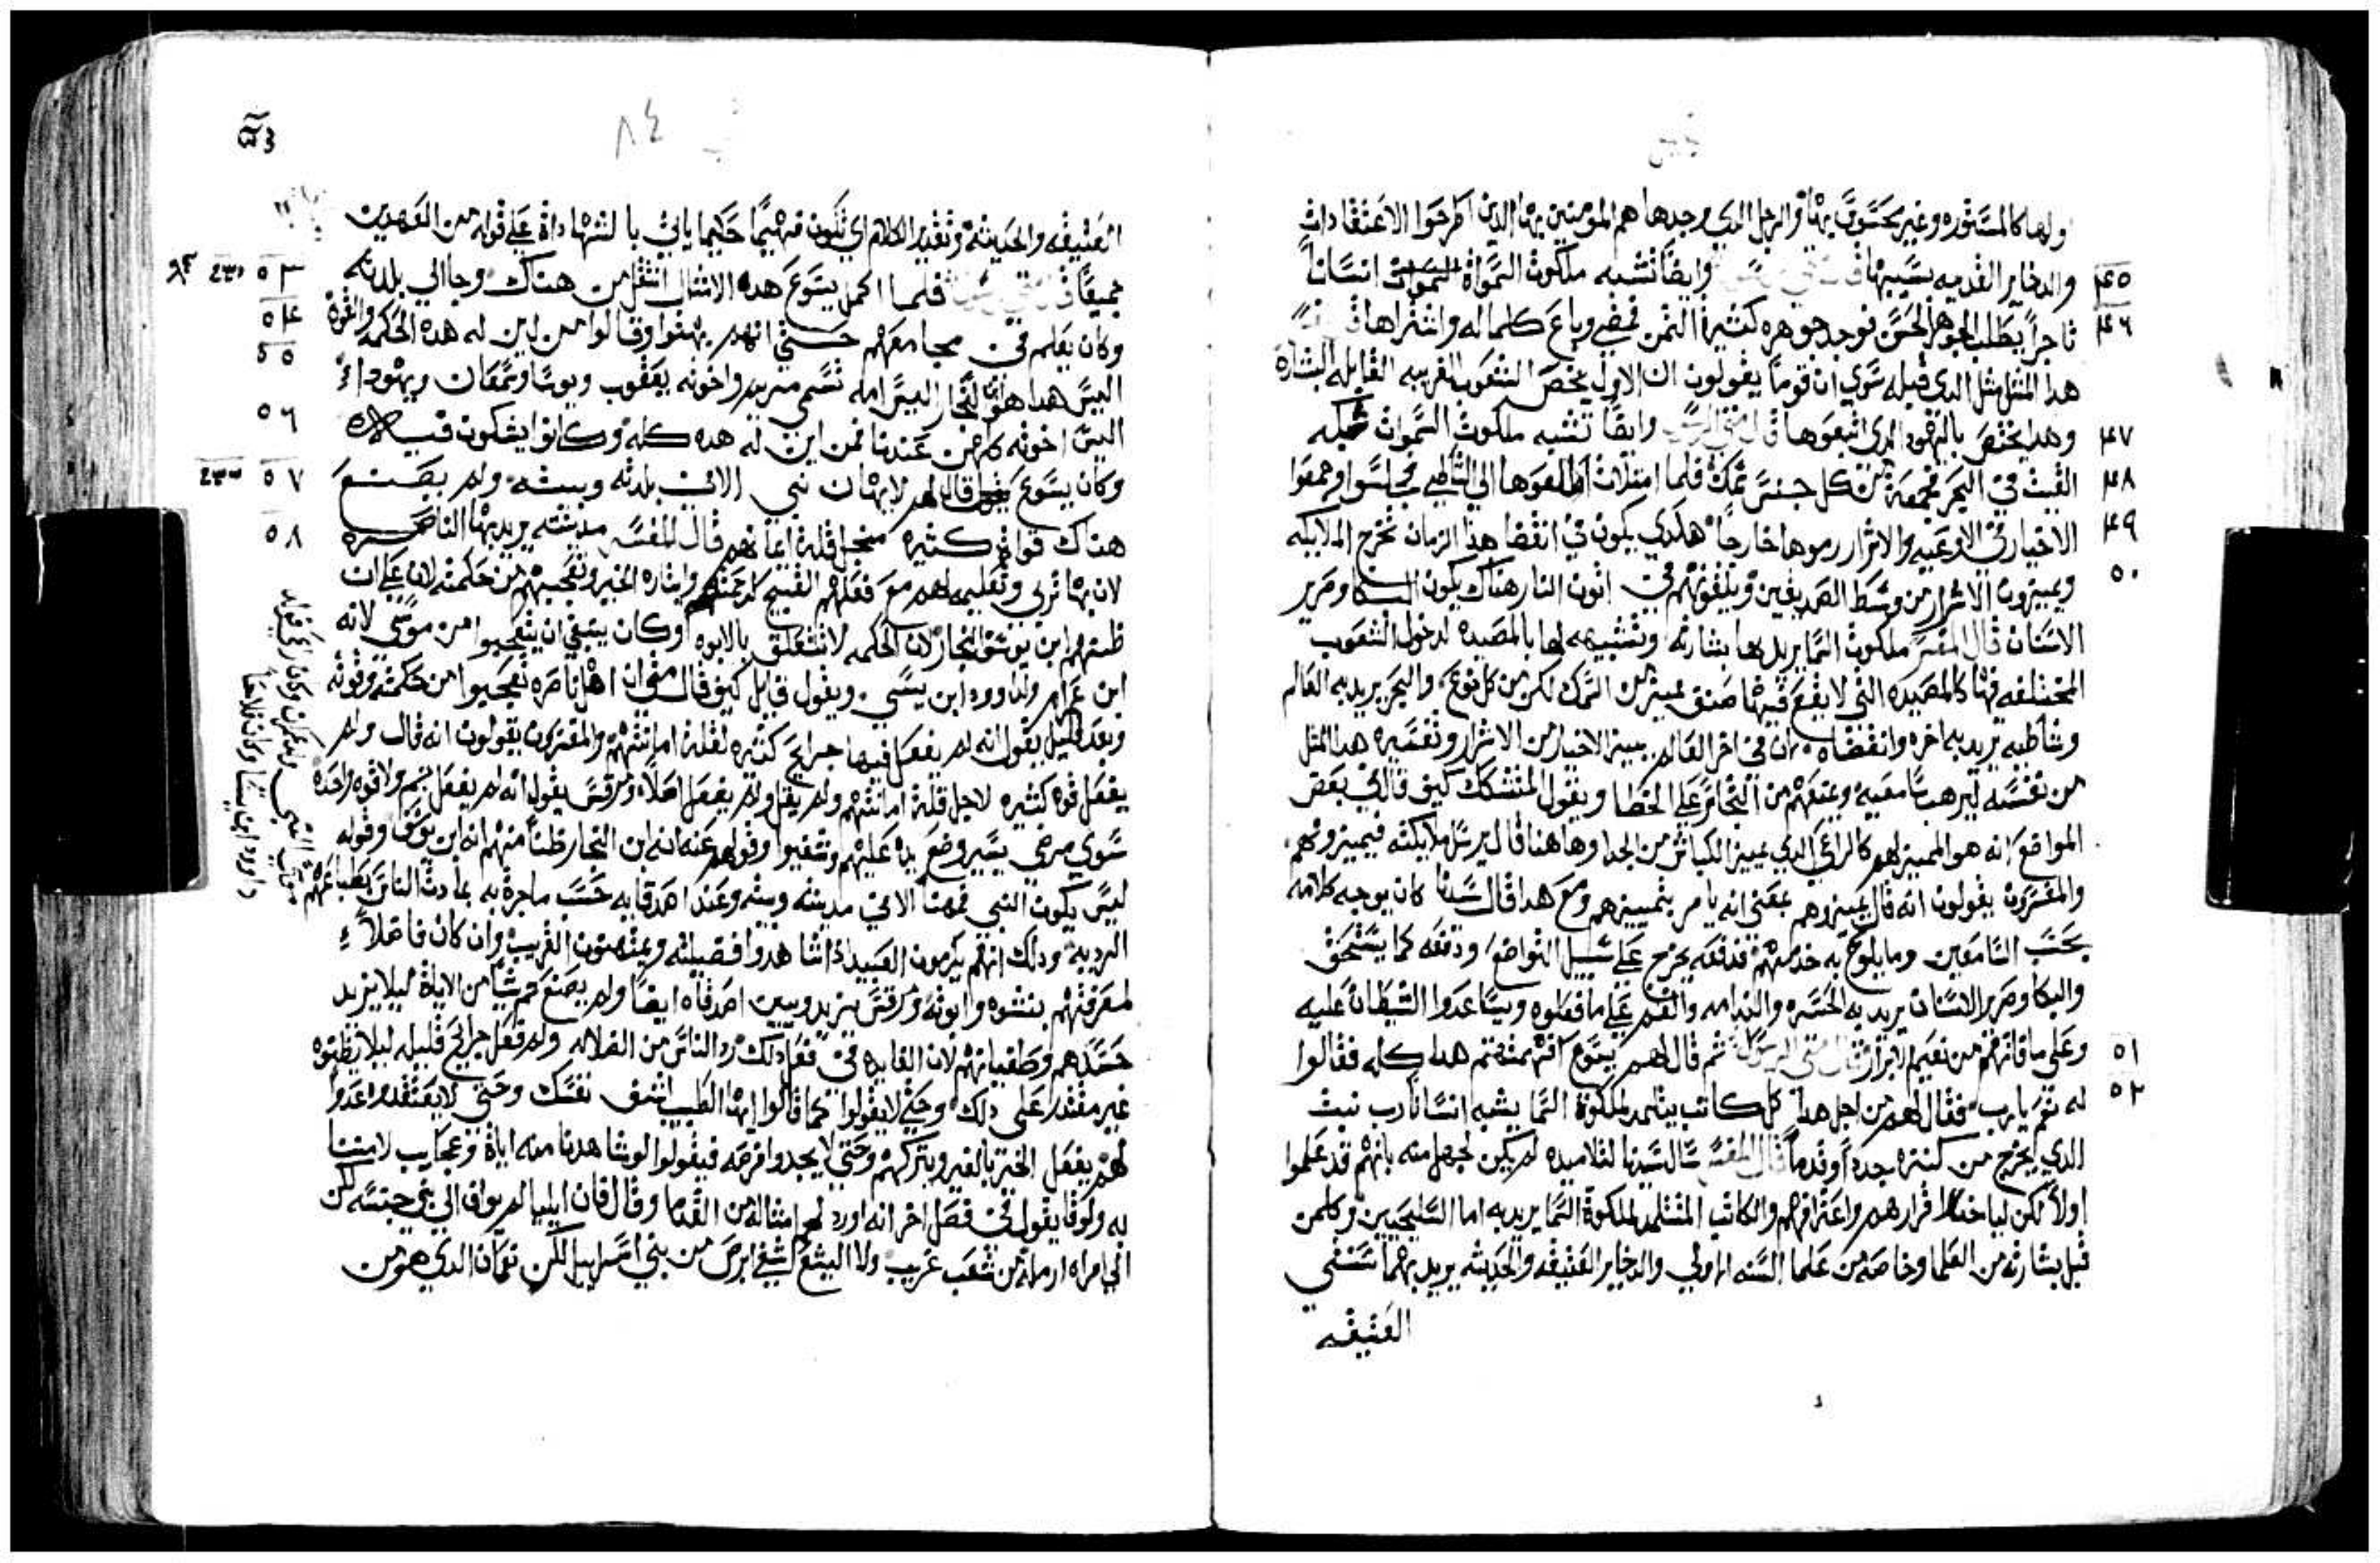 ولها كالمستوره وغير محسوب بها والرجل الدي وجدها هم المومنين بها الدين اطرحوا الاعتقادات
والدخاير القديمه بسببها وايضًا تشبه ملكوت السموات انسانًا ٤٥
تاجرًا يطلب الجوهر الحسن فوجد جوهره كثيرة الثمن فمضي وباع كلما له واشتراها ٤٦
هدا المثل مثل الدي قبله سوي ان قومًا يقولون ان الاول يخص الشعوب الغريبه القابله البشارة
وهدا يختص باليهود الدي اتبعوها وايضًا تشبه ملكوت السموات شبكه ٤٧
القيت في البحر فجمعة من كل جنس سمك فلما امتلات اطلعوها الي الشاطي فجلسوا وجمعوا ٤٨
الاخيار في الاوعيه والاشرار رموها خارجًا هكدي يكون في انقضا هدا الزمان تخرج الملايكه ٤٩
ويميزون الاشرار من وسط الصديقين ويلقونهم في اتون النار هناك يكون البكا وصرير ٥٠
الاسنان قال المفسر ملكوت السما يريد بها بشارته وتشبيهه لها بالمصيده لدخول الشعوب
المختلفه فيها كالمصيده التي لا يقع فيها صنف مميز من السمك لكن من كل نوع والبحر يريد به العالم
وشاطيه يريد به اخره وانقضاه ان في اخر العالم يميز الاخيار من الاشرار وتفسيره هدا المثل
من نفسه ليرهب سامعيه ويمنعهم من التجاسر علي الخطا ويقول المتشكك كيف قال في بعض
المواضع انه هو المميز لهم كالراعي الدي يميز الكباش من الجدا وهاهنا قال يرسل ملايكته فيميزونهم
والمفسرون يقولون انه قال يميزهم بمعني انه يامر بتمييزهم ومع هدا قال سيدنا كان يوجه كلامه
بحسب السامعين وما يلوح به خدمتهم فدفعه يخرج علي سبيل التواضع ودفعه كما يستحق
والبكا وصرير الاسنان يريد به الحسره والندامه والغم علي ما فعلوه وساعدوا الشيطان عليه
وعلي ما فاتهم من نعيم الابرار قال متي الرسول ثم قال لهم يسوع افهمتم هدا كله فقالوا ٥١
له نعم يارب فقال لهم من اجل هدا كل كاتب يتلمد لملكوة السما يشبه انسانًا رب بيت ٥٢
الدي يخرج من كنزه جددًا وقدمًا قال المفسر سال سيدنا لتلاميده لم يكن لجهل منه بانهم قد علموا
اولاً لكن لياخد اقرارهم واعترافهم والكاتب المتتلمد لملكوة السما يريد به اما السليحيين وكلمن
قبل بشارته من العلما وخاصه من علما السنه الاولي والدخاير العتيقه والحديثه يريد بهما
العتيقه
٨٤
العتيقه والحديثه وتقدير الكلام اي تكون فهيمًا حكيما ياتي بالشهادة علي قوله من العهدين
جميعًا فلما اكمل يسوع هده الامثال انتقل من هناك وجا الي بلدته ٥٣
وكان يعلم في مجامعهم حتي انهم بهتوا وقالوا من اين له هده الحكمه والقوة ٥٤
اليس هدا هو ابن النجار اليس امه تسمي مريم واخوته يعقوب ويوسا وسمعان ويهودا ٥٥
اليس اخوته كلهن عندنا فمن اين له هده كله وكانوا يشكون فيه ٥٦
وكان يسوع قال لهم لا يهان نبي الا في بلدته وبيته ولم يصنع ٥٧
هناك قوات كثيره من اجل قلة ايمانهم قال المفسر مدينته يريد بها الناصره ٥٨
لان بها تربي وتعليمه لهم مع فعلهم القبيح لرحمته وايثاره الخير وتعجبهم من حكمته لان علي ان
ظنهم ابن يوسف النجار لان الحكمه لا تتعلق بالابوه وكان ينبغي ان يتعجبوا من موسي لانه
ابن عمرام ولداوود ابن يسي ويقول قايل كيف قال متي ان اهل ناصره تعجبوا من حكمته وقوته
وبعد قليل يقول انه لم يفعل فيها جرايح كثيره لقلة امانتهم والمفسرون يقولون انه قال ولم
يفعل قوه كثيره لاجل قلة امانتهم ولم يقل ولم يفعل اصلاً ومرقس يقول انه لم يفعل ثم ولا قوه واحده
سوي مرضي يسير وضع يده عليهم وشفيوا وقولهم عنه انه ابن النجار ظنًا منهم انه ابن يوسف وقوله
ليس يكون النبي ممهنا الا في مدينته وبيته وعند اهله قاله حسب ماجرة به عادت الناس بطباعهم
الرديه ودلك انهم يكرمون البعيد ادا شاهدوا فضيلته ويمتهنون القريب وان كان فاضلاً
لمعرفتهم بنشوه وابوته ومرقس يزيد وبين اصدقاه ايضًا ولم يصنع ثم شيًا من الاياة ليلا يزيد
حسدهم وطغيانهم لان الفايده في فعل دلك رد الناس من الضلاله ولم فعل جرايح قليله ليلا يظنوه
غير مقتدر علي دلك وحتي لا يقولوا كما قالوا ايها الطبيب اشف نفسك وحتي لا يعتقدوا عدوًا
لهم يفعل الخير بالغير ويتركهم وحتي لا يجدوا فرصه فيقولوا لو شاهدنا منه اياة وعجايب لامننا
به ولوقا يقول في فصل اخر انه اورد لهم امثاله من القدما وقال فان ايليا لم يواف الي بني جنسه لكن
الي امراه ارمله من شعب غريب ولا اليشع شفي ابرص من بني اسراييل لكن نعمان الدي هو من